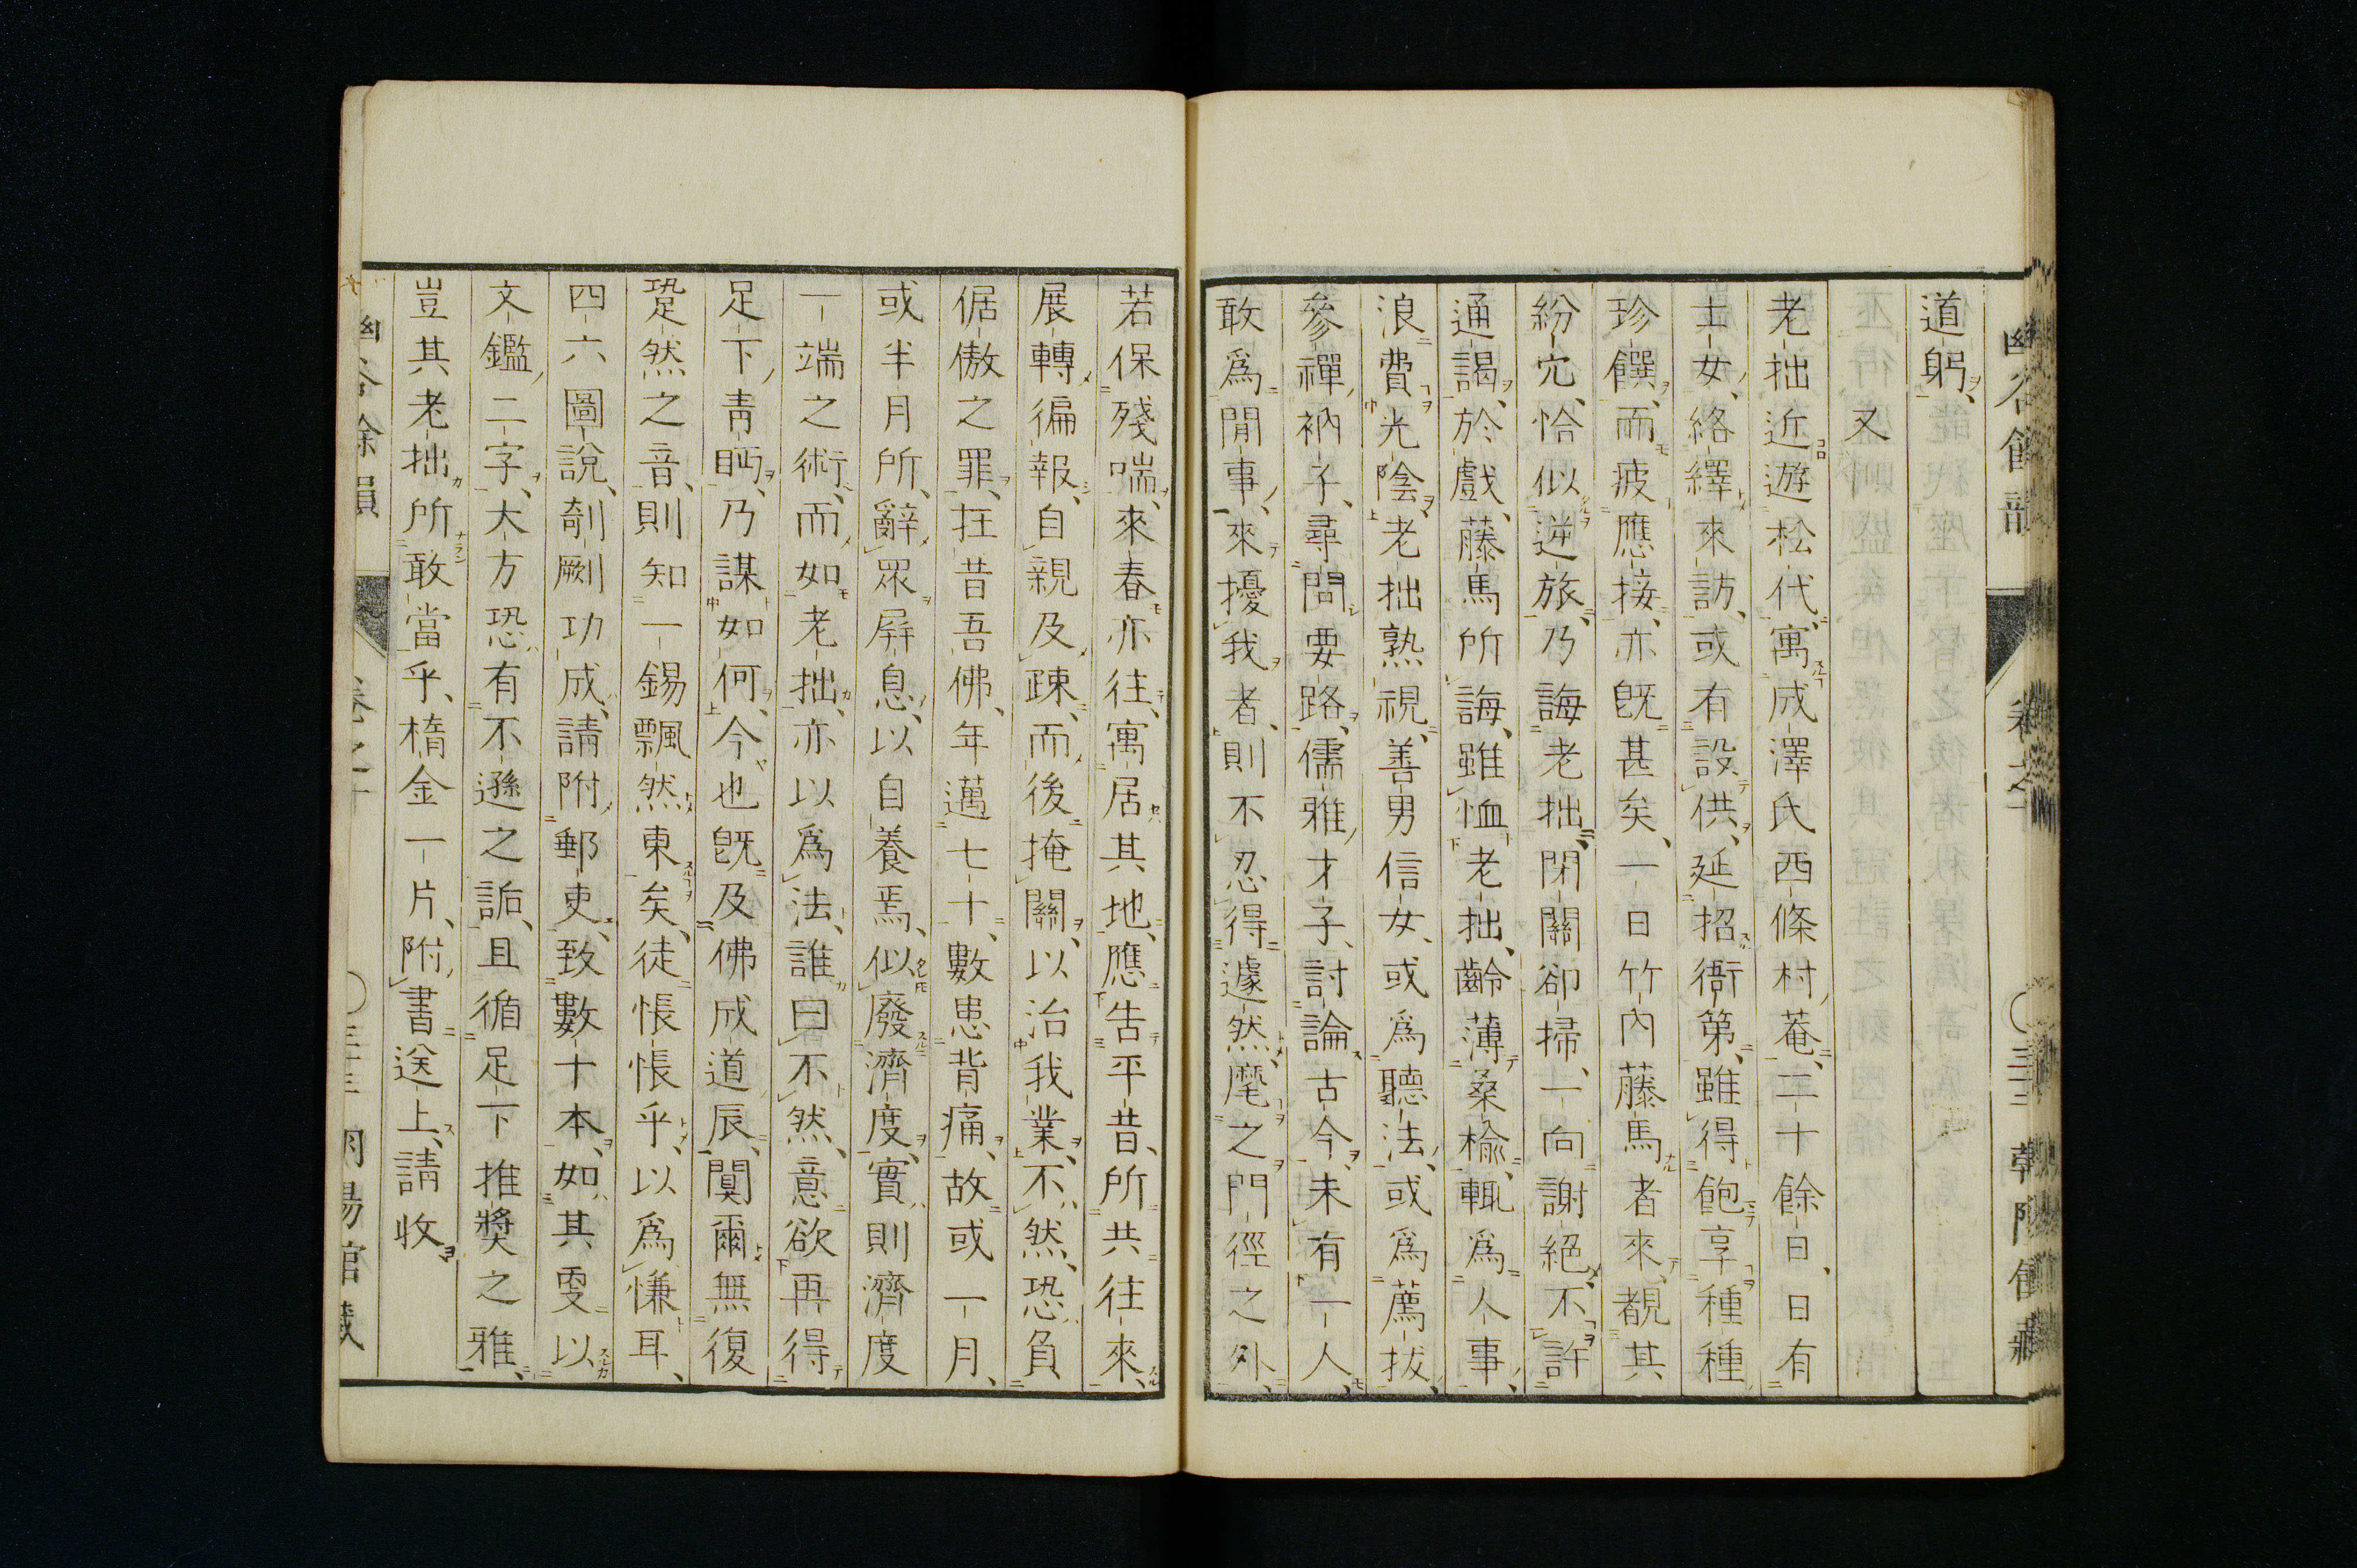 道躬、
又
老拙近遊松代、寓成澤氏西條村菴、二十餘日、日有
士女絡繹來訪、或有設供、延招衙第、雖得飽享種種
珍饌、而疲應接、亦旣甚矣、一日竹內藤馬者來、覩其
紛冗、恰似逆旅、乃誨老拙、閉關卻掃、一向謝絕、不許
通謁、於戲、藤馬所誨、雖恤老拙、齡薄桑楡、輒爲人事、
浪費光陰、老拙熟視、善男信女、或爲聽法、或爲薦拔、
參禪衲子、尋問要路、儒雅才子、討論古今、未有一人、
敢爲閒事、來擾我者、則不忍得遽然、麾之門徑之外、
若保殘喘、來春亦往、寓居其地、應告平昔、所共往來、
展轉徧報、自親及疎、而後掩關、以治我業、不然、恐負
倨傲之罪、抂昔吾佛、年邁七十、數患背痛、故或一月、
或半月所、辭眾屛息、以自養焉、似廢濟度、實則濟度
一端之術、而如老拙、亦以爲法、誰曰不然、意欲再得
足下靑眄、乃謀如何、今也旣及佛成道辰、闃爾無復
跫然之音、則知一錫飄然東矣、徒悵悵乎、以爲慊耳、
四六圖說、剞劂功成、請附郵吏、致數十本、如其雯以
文鑑二字、大方恐有不遜之詬、且循足下推獎之雅、
豈其老拙所敢當乎、楕金一片、附書送上、請收
幽谷餘韻 卷之十 朝陽館藏